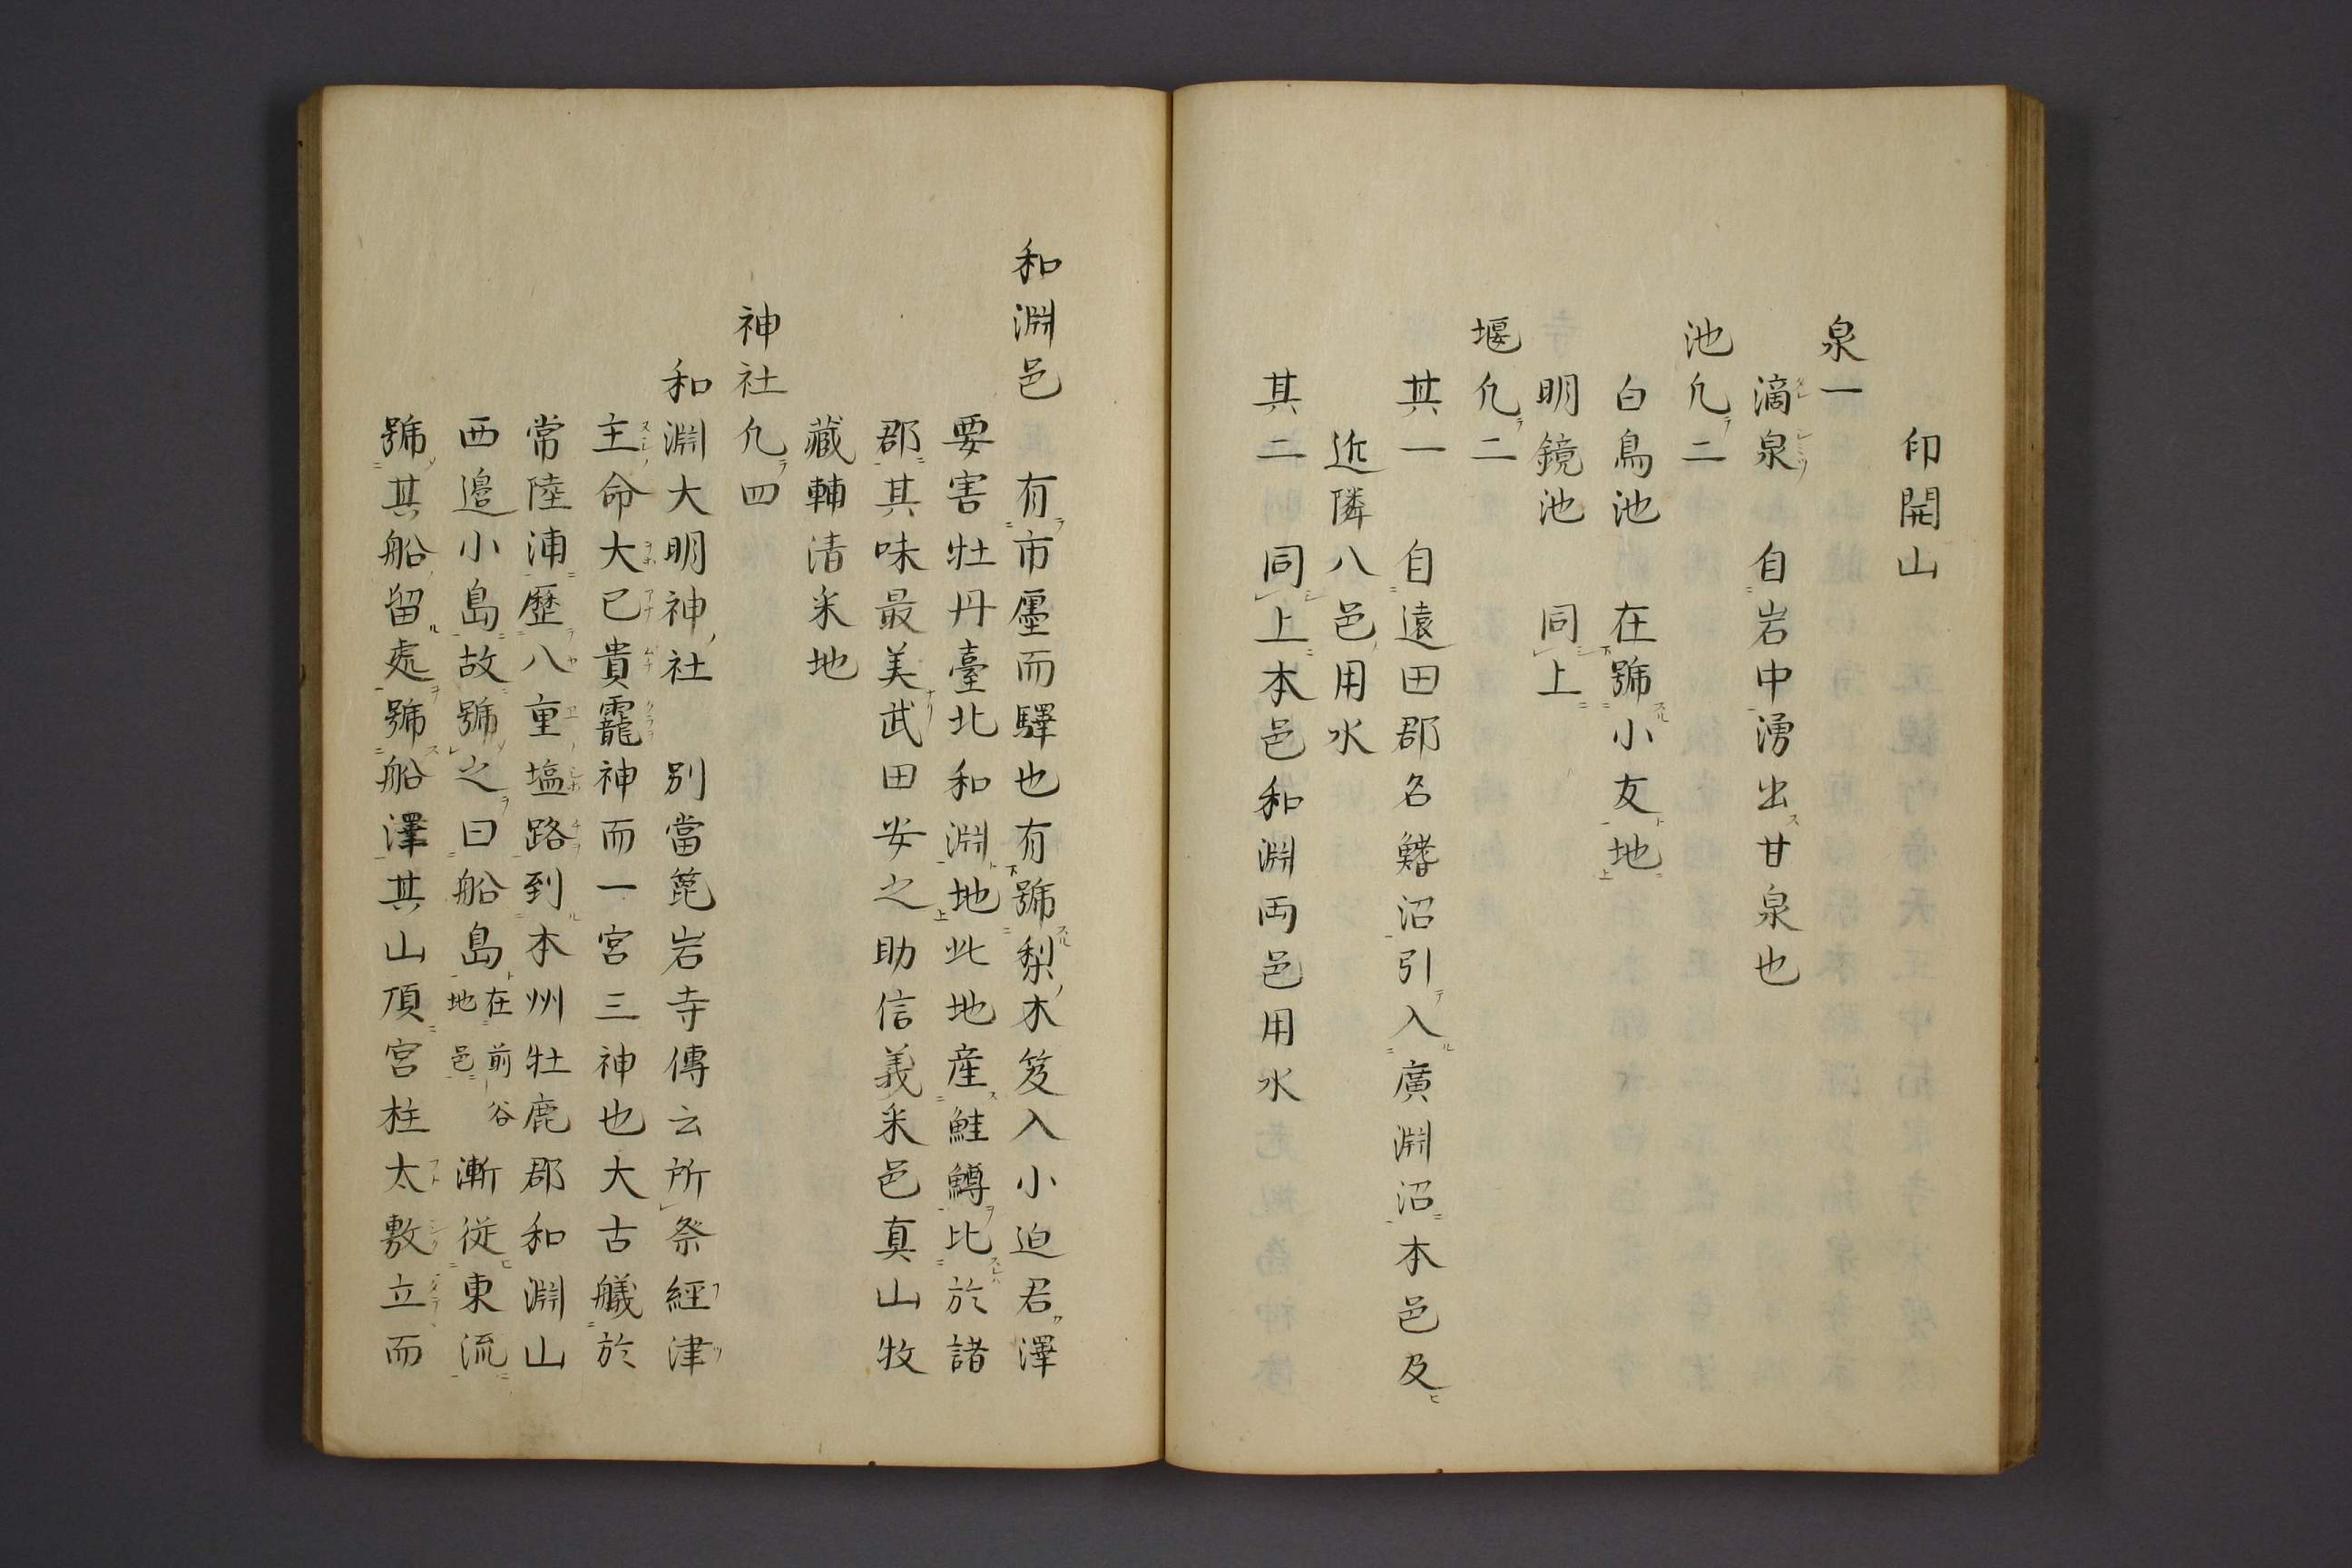 印開山
泉一
滴泉 自岩中湧出甘泉也
池凢二
白鳥池 在號小友地
明鏡池 同上
堰凢二
其一 自遠田郡名鰭沼引入廣淵沼本邑及
近隣八邑用水
其二 同上本邑和淵両邑用水
和淵邑 有市廛而驛也有號梨木笈入小迫君澤
要害牡丹臺北和淵地此地産鮭鱒比於諸
郡其味最美武田安之助信義采邑真山牧
藏輔清采地
神社凢四
和淵大明神社 別當箟岩寺傳云所祭經津
主命大已貴龗神而一宮三神也大古艤於
常陸浦歷八重塩路到本州牡鹿郡和淵山
西邉小島故號之曰船島在前谷地邑漸從東流
號其船留處號船澤其山頂宮柱太敷立而